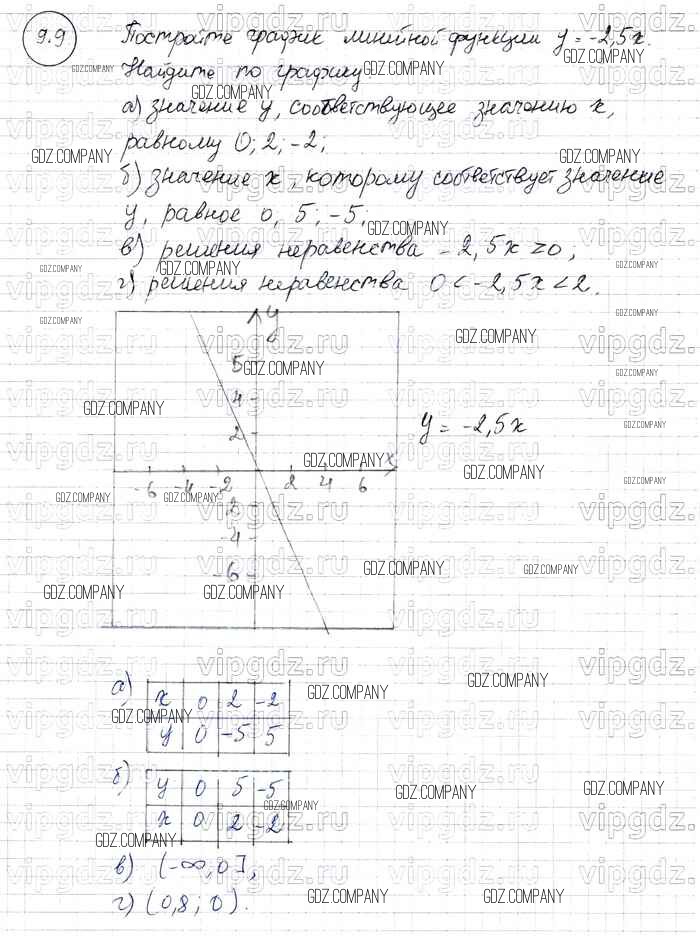 9.9 Постройте график линейной функции y = -2,5x.
Найдите по графику
а) значение y, соответствующее значению x,
равному 0; 2; -2;
б) значение x, которому соответствует значение
y, равное 0, 5; -5;
в) решения неравенства -2,5x ≥ 0;
г) решения неравенства 0 < -2,5x < 2.
y
5
4
2
x
-6 -4 -2 2 4 6
-2
-4
-6
y = -2,5x
а)
x 0 2 -2
y 0 -5 5
б)
y 0 5 -5
x 0 2 -2
в) (-∞, 0],
г) (0,8; 0).
GDZ.COMPANY
vipgdz.ru